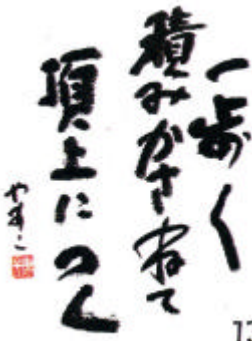 一歩〱
積みかさねて
頂上につく
やすこ
13